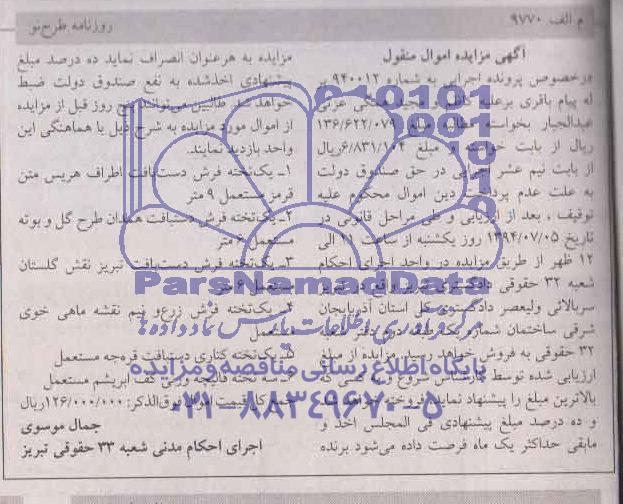 م الف ۹۷۷۰
روزنامه طرح نو
آگهی مزایده اموال منقول
درخصوص پرونده اجرایی به شماره ۹۴۰۰۱۲
له پیام باقری برعلیه مجید عزتی
عبدالجبار بخواسته مطالبه مبلغ ۱۳۶/۶۲۲/۰۷۹
ریال از بابت خواسته و مبلغ ۶/۸۳۱/۱۰۴ریال
از بابت نیم عشر اجرایی در حق صندوق دولت
به علت عدم پرداخت دین اموال محکوم علیه
توقیف ، بعد از ارزیابی و طی مراحل قانونی در
تاریخ ۱۳۹۴/۰۷/۰۵ روز یکشنبه از ساعت ۱۱ الی
۱۲ ظهر از طریق مزایده در واحد اجرای احکام
شعبه ۳۳ حقوقی دادگستری تبریز واقع در تبریز
سربالائی ولیعصر دادگستری کل استان آذربایجان
شرقی ساختمان شماره یک طبقه دوم دفتر شعبه
۳۲ حقوقی به فروش خواهد رسید. مزایده از مبلغ
ارزیابی شده توسط کارشناس شروع و به کسی که
بالاترین مبلغ را پیشنهاد نماید فروخته خواهد شد
و ده درصد مبلغ پیشنهادی فی المجلس اخذ و
مابقی حداکثر یک ماه فرصت داده می‌شود برنده
مزایده به هرعنوان انصراف نماید ده درصد مبلغ
پیشنهادی اخذشده به نفع صندوق دولت ضبط
خواهد شد. طالبین می‌توانند پنج روز قبل از مزایده
از اموال مورد مزایده به شرح ذیل با هماهنگی این
واحد بازدید نمایند.
۱ـ یک‌تخته فرش دست‌بافت اطراف هریس متن
قرمز مستعمل ۹ متر
۲ـ یک‌تخته فرش دستبافت همدان طرح گل و بوته
مستعمل ۶ متر
۳ـ یک‌تخته فرش دست‌بافت تبریز نقش گلستان
مستعمل ۶ متر
۴ـ یک‌تخته فرش زرع و نیم نقشه ماهی خوی
مستعمل
۵ـ یک‌تخته کناری دستبافت قره‌جه مستعمل
۶ـ سه تخته قالیچه ورنی کف ابریشم مستعمل
جمع کل قیمت اموال فوق‌الذکر: ۱۲۶/۰۰۰/۰۰۰ریال
جمال موسوی
اجرای احکام مدنی شعبه ۳۳ حقوقی تبریز
ParsNamadData
پایگاه اطلاع رسانی مناقصه و مزایده
۰۲۱-۸۸۳۴۹۶۷۰-۵